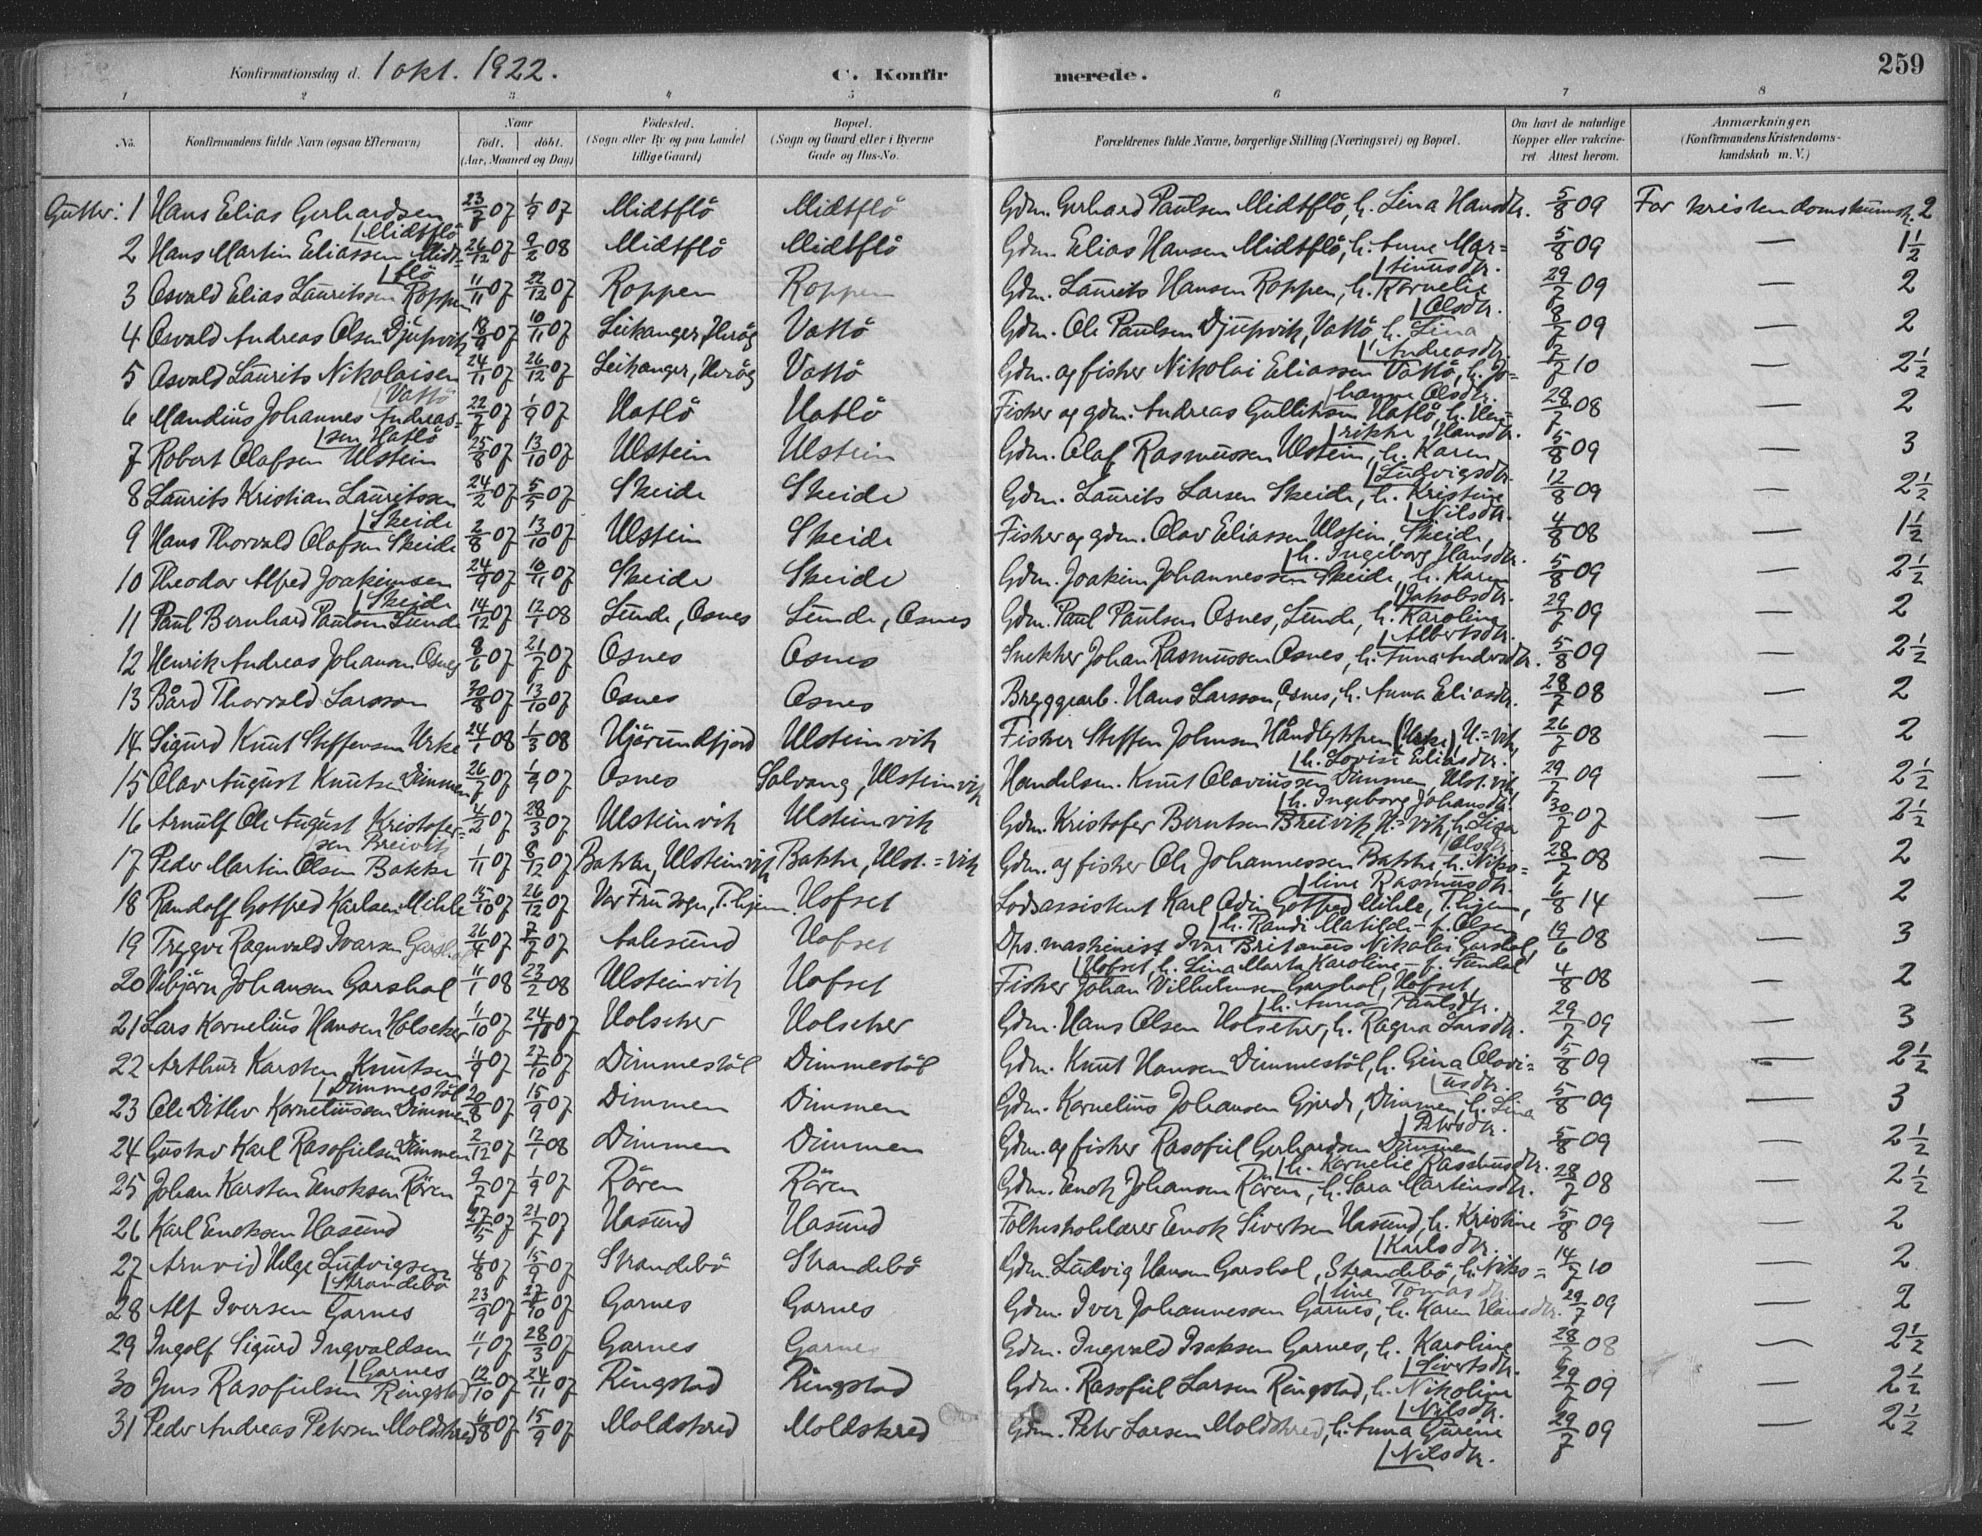 Konfirmationsdag d. 1 okt. 1922. C. Konfirmerede. 259
1 2 3 4 5 6 7 8
No. Konfirmandens fulde Navn (ogsaa Efternavn) Naar født. døbt. (Aar, Maaned og Dag) Fødested. (Sogn eller By og paa Landet tillige Gaard) Bopæl. (Sogn og Gaard eller i Byerne Gade og Hus-No. Forældrenes fulde Navne, borgerlige Stilling (Næringsvei) og Bopæl. Om havt de naturlige Kopper eller vakcineret. Attest herom. Anmærkninger. (Konfirmandens Kristendomskundskab m. V.)
Gutter: 1 Hans Elias Gerhardsen Midtflö 23/7 07 1/9 07 Midtflö Midtflö Gdm. Gerhard Paulsen Midtflö, h. Lina Hansdtr. 5/8 09 For kristendomskunsk. 2
2 Hans Martin Eliassen Midtflö 26/12 07 9/2 08 Midtflö Midtflö Gdm. Elias Hansen Midtflö, h. Anne Martinusdtr. 5/8 09 — 1½
3 Osvald Elias Lauritssen Roppen 11/11 07 22/12 07 Roppen Roppen Gdm. Laurits Hansen Roppen, h. Kornelie Olsdtr. 29/7 09 — 2
4 Osvald Andreas Olsen Djupvik 18/9 07 10/11 07 Leikanger, Heröy Vattö Gdm. Ole Paulsen Djupvik, Vattö, h. Lina Andreasdtr. 8/7 09 — 2
5 Osvald Laurits Nikolaisen Vattö 24/11 07 26/12 07 Leikanger, Heröy Vattö Gdm. og fisker Nikolai Eliassen Vattö, h. Johanne Olsdtr. 10 — 2½
6 Mandius Johannes Andreassen Hatlö 22/7 07 1/9 07 Hatlö Hatlö Fisker og gdm. Andreas Gullitsen Hatlö, h. Henrikke Hansdtr. 28/7 08 — 2
7 Robert Olafsen Ulstein 25/8 07 13/10 07 Ulstein Ulstein Gdm. Olaf Rasmussen Ulstein, h. Karen Ludvigsdtr. 5/8 09 — 3
8 Laurits Kristian Lauritssen Skeide 24/2 07 5/5 07 Skeide Skeide Gdm. Laurits Larsen Skeide, h. Kristine Nilsdtr. 12/8 09 — 2½
9 Hans Thorvald Olafsen Skeide 2/8 07 13/10 07 Ulstein Skeide Fisker og gdm. Olav Eliassen Ulstein, Skeide, h. Ingeborg Hansdtr. 4/8 08 — 1½
10 Theodor Alfred Joakimsen Skeide 24/9 07 10/11 07 Skeide Skeide Gdm. Joakim Johannessen Skeide, h. Karen Jakobsdtr. 5/8 09 — 2½
11 Paul Bernhard Paulsen Sunde 14/12 07 12/1 08 Sunde, Osnes Sunde, Osnes Gdm. Paul Paulsen Osnes, Sunde, h. Karoline Albertsdtr. 29/7 09 — 2
12 Henrik Andreas Johansen Osnes 8/6 07 21/7 07 Osnes Osnes Snekker Johan Rasmussen Osnes, h. Anna Andersdtr. 5/8 09 — 2½
13 Bård Thorvald Larsson 30/8 07 13/10 07 Osnes Osnes Bryggearb. Hans Larsson, Osnes, h. Anna Eliasdtr. 28/7 08 — 2
14 Sigurd Knut Steffensen Urke 24/1 08 1/3 08 Hjörundfjord Ulsteinvik Fisker Steffen Johnsen (Urke) U.=vik, h. Lovise Eliasdtr. 26/7 08 — 2
15 Olav August Knutsen Dimmen 26/7 07 1/9 07 Osnes Solvang, Ulsteinvik Handelsm. Knut Olaviussen Dimmen, Ulst.vik h. Ingeborg Johansdtr. 29/7 09 — 2½
16 Arnulf Ole August Kristofersen Breivik 4/2 07 28/3 07 Ulsteinvik Ulsteinvik Gdm. Kristofer Berntsen Breivik, U.=vik, h. Lisa Olsdtr. 30/7 07 — 2½
17 Peder Martin Olsen Bakke 1/11 07 8/12 07 Bakke, Ulsteinvik Bakke, Ulst.=vik Gdm. og fisker Ole Johannessen Bakke, h. Nikoline Rasmusdtr. 28/7 08 — 2
18 Randolf Gotfred Karlsen Mikle 15/10 07 26/12 07 Vor Frue sogn, T.hjem. Hofset Lodsassistent Karl Odin Gotfred Mikle, T.hjem, h. Randi Matilde f. Olsen 6/8 14 — 2
19 Trygve Ragnvald Ivarsen Garshol 26/4 07 7/7 07 Aalesund Hofset Dps. maskinist Ivar Britanus Nikolai Garshol, Hofset, h. Lina Marta Karoline f. Sundal 19/6 08 — 3
20 Vibjörn Johansen Garshol 11/1 08 23/2 08 Ulsteinvik Hofset Fisker Johan Vilhelmsen Garshol, Hofset, h. Anna Paulsdtr. 4/8 08 — 2
21 Lars Kornelius Hansen Holseker 1/10 07 24/10 07 Holseker Holseker Gdm. Hans Olsen Holseker, h. Ragna Larsdtr. 29/7 09 — 3
22 Arthur Karsten Knutsen Dimmestöl 11/9 07 27/10 07 Dimmestöl Dimmestöl Gdm. Knut Hansen Dimmestöl, h. Gina Olaviusdtr. 5/8 09 — 2½
23 Ole Ditlev Korneliussen Dimmen 20/8 07 15/9 07 Dimmen Dimmen Gdm. Kornelius Johansen Gjerde, Dimmen, h. Lina Petersdtr. 5/8 09 — 3
24 Gustav Karl Rasofielsen Dimmen 2/12 07 12/1 08 Dimmen Dimmen Gdm. og fisker Rasofiel Gerhardsen Dimmen h. Kornelie Rasmusdtr. 5/8 09 — 2½
25 Johan Karsten Enoksen Rären 9/7 07 1/9 07 Rären Rären Gdm. Enok Johansen Rären, h. Sara Martinsdtr. 28/7 08 — 2½
26 Karl Enoksen Hasund 27/5 07 21/7 07 Hasund Hasund Folkeskolelærer Enok Sivertsen Hasund, h. Kristine Karlsdtr. 5/8 09 — 2
27 Arnvid Helge Ludvigsen Strandebö 4/8 07 15/9 07 Strandebö Strandebö Gdm. Ludvig Hansen Garshol, Strandebö, h. Nikoline Tomasdtr. 14/7 10 — 2
28 Alf Iversen Garnes 23/9 07 27/10 07 Garnes Garnes Gdm. Iver Johannessen Garnes, h. Karen Hansdtr. 29/7 09 — 2
29 Ingolf Sigurd Ingvaldsen Garnes 11/1 07 28/3 07 Garnes Garnes Gdm. Ingvald Isaksen Garnes, h. Karoline Sivertsdtr. 28/7 08 — 2½
30 Jens Rasofielsen Ringstad 12/10 07 24/11 07 Ringstad Ringstad Gdm. Rasofiel Larsen Ringstad, h. Nikoline Nilsdtr. 29/7 09 — 2½
31 Peder Andreas Petersen Moldskred 6/8 07 15/9 07 Moldskred Moldskred Gdm. Peter Larsen Moldskred, h. Anna Gurine Nilsdtr. 29/7 09 — 2½